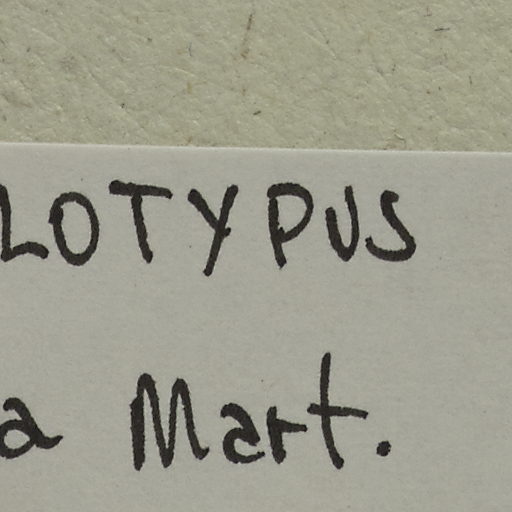 LOTYPUS
a Mart.